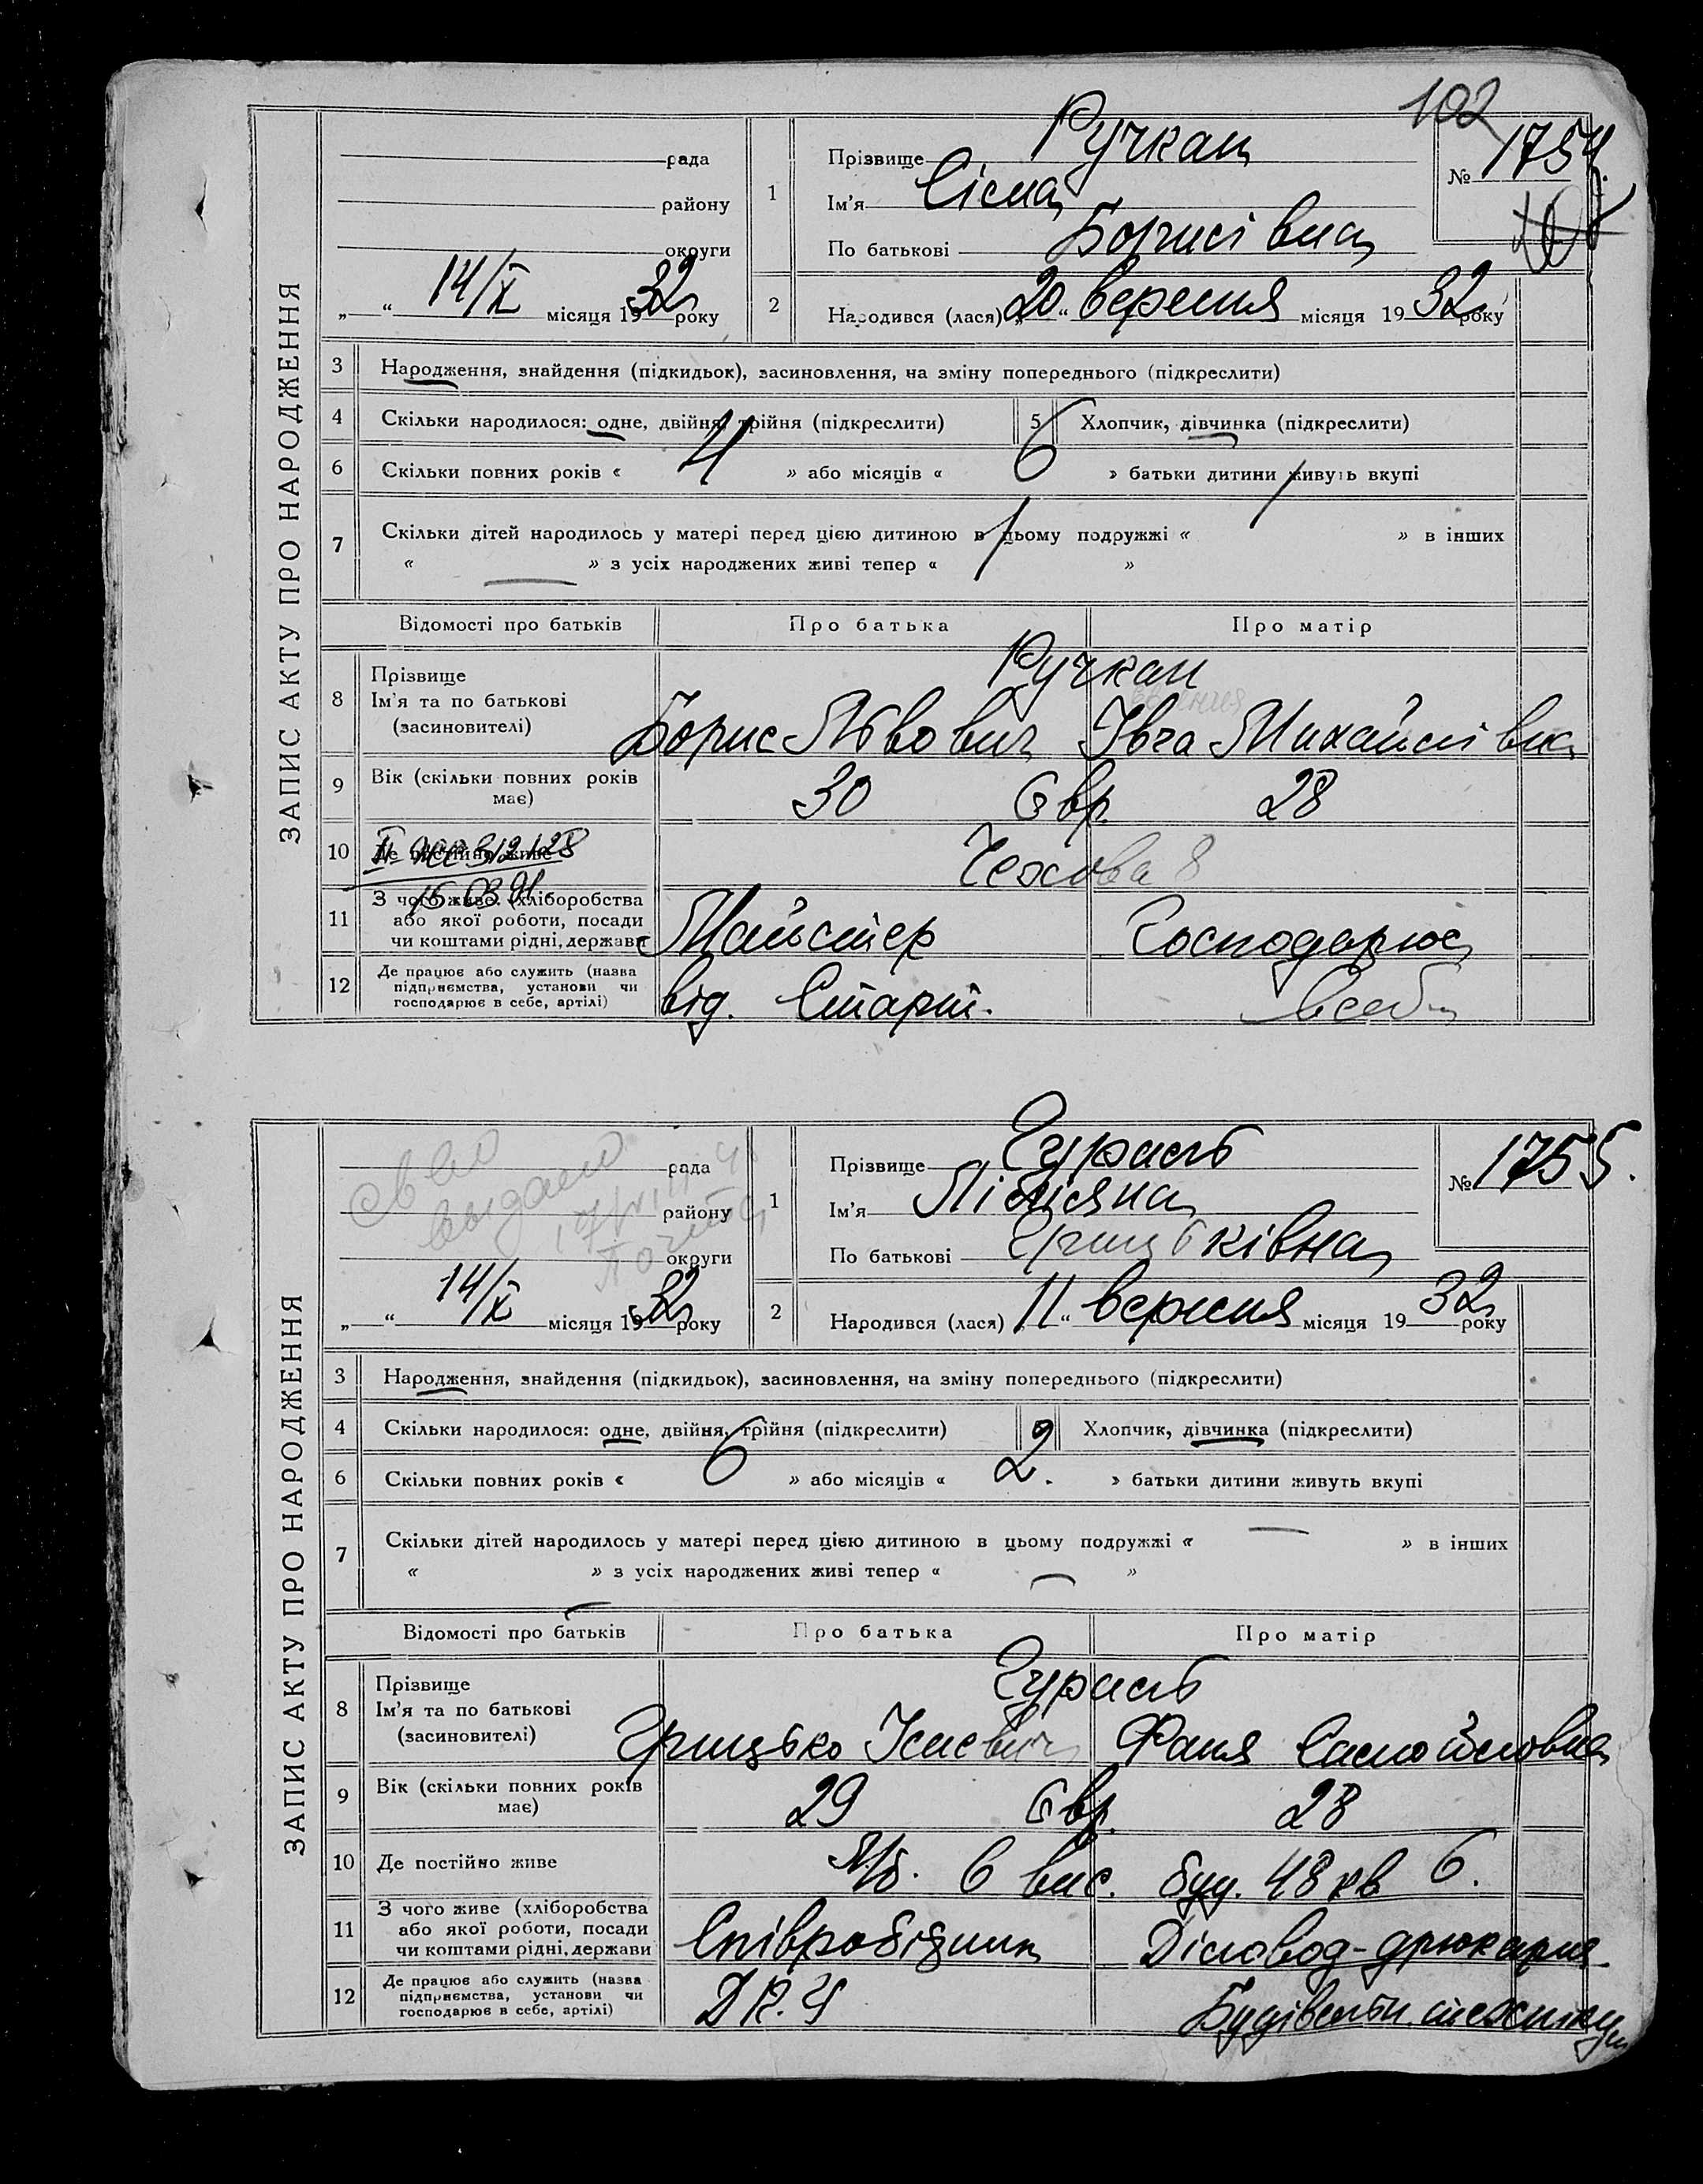 102
ЗАПИС АКТУ ПРО НАРОДЖЕННЯ
рада
району
округи
„ “ 14/X місяця 1932 року
1
Прізвище Ручкан
Ім'я
По батькові Борисівна
№ 1754.
2
Народився (лася) „20“ вересня місяця 1932 року
3 Народження, знайдення (підкидьок), засиновлення, на зміну попереднього (підкреслити)
4 Скільки народилося: одне, двійня, трійня (підкреслити)
5 Хлопчик, дівчинка (підкреслити)
6 Скільки повних років « 4 » або місяців « 6 » батьки дитини живуть вкупі
7 Скільки дітей народилось у матері перед цією дитиною в цьому подружжі « » в інших
« — » з усіх народжених живі тепер « »
Відомості про батьків Про батька Про матір
8 Прізвище
Ім'я та по батькові
(засиновителі)
Ручкан
Борис Львович Івга Михайлівна
9 Вік (скільки повних років має) 30 Євр. 28
10 Де постійно живе Чехова 8
15.03.91
11 З чого живе (хліборобства або якої роботи, посади чи коштами рідні, держави Майстер Господарює
12 Де працює або служить (назва підприємства, установи чи господарює в себе, артілі) від. Старт. в себе
ЗАПИС АКТУ ПРО НАРОДЖЕННЯ
рада
району
округи
св во
выдано
„ “ 14/X місяця 1932 року
1
Прізвище Гураль
Ім'я Ліліяна
По батькові Грицьківна
№ 1755.
2
Народився (лася) „11“ вересня місяця 1932 року
3 Народження, знайдення (підкидьок), засиновлення, на зміну попереднього (підкреслити)
4 Скільки народилося: одне, двійня, трійня (підкреслити)
Хлопчик, дівчинка (підкреслити)
6 Скільки повних років « 6 » або місяців « 2. » батьки дитини живуть вкупі
7 Скільки дітей народилось у матері перед цією дитиною в цьому подружжі « — » в інших
« » з усіх народжених живі тепер « — »
Відомості про батьків Про батька Про матір
8 Прізвище
Ім'я та по батькові
(засиновителі)
Гураль
Грицько Фаня Самойловна
9 Вік (скільки повних років має) 29 Євр. 28
10 Де постійно живе 6 вис. буд. 48 кв 6.
11 З чого живе (хліборобства або якої роботи, посади чи коштами рідні, держави Співробітник Діловод-друкарня
12 Де працює або служить (назва підприємства, установи чи господарює в себе, артілі) Будівельн. технікум